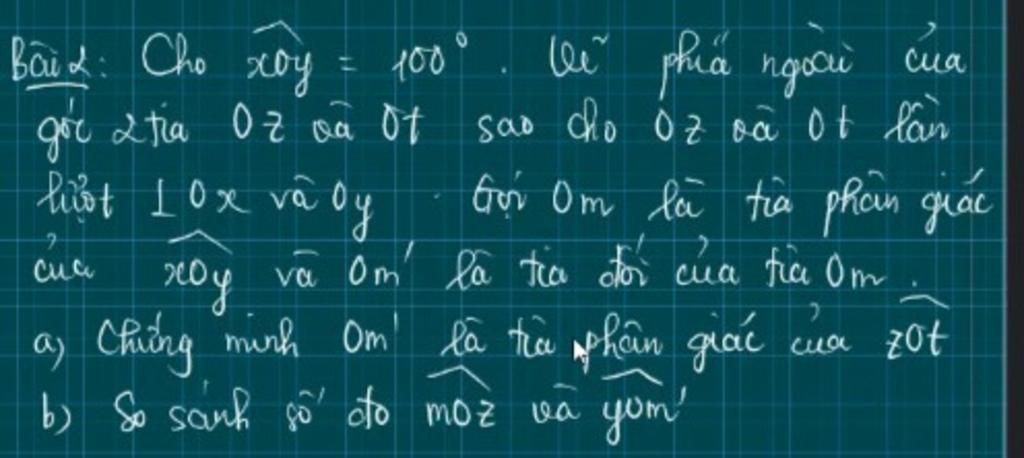 Bài 2: Cho xOy = 100°. Vẽ phía ngoài của
góc 2 tia Oz và Ot sao cho Oz và Ot lần
lượt ⊥ Ox và Oy. Gọi Om là tia phân giác
của xOy và Om' là tia đối của tia Om.
a) Chứng minh Om' là tia phân giác của zOt
b) So sánh số đo mOz và yOm'